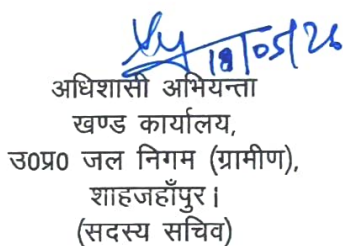 18/05/26
अधिशासी अभियन्ता
खण्ड कार्यालय,
उ0प्र0 जल निगम (ग्रामीण),
शाहजहाँपुर।
(सदस्य सचिव)